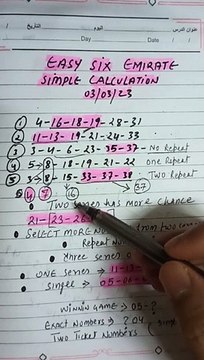 عنوان الدرس
التاريخ
Day
Date
EASY SIX EMIRATE
SIMPLE CALCULATION
03/03/23
① 4-16-18-19-28-31
② 11-13-19-21-24-33
③ 3-4-6-23-35-37 → No Repeat
④ 5→8-18-19-21-22 one Repeat
⑤ 3→8-15-33-37-38 Two Repeat
④ ⑦ ⑯ 37
• Two series has more chance
21-23-26
• SELECT MORE from two
Repeat
Three series
• ONE SERIES = 11-13-
• SIMPLE = 05-06-
WINNING GAME → 05-
EXACT NUMBERS → ? 04
TWO TICKET NUMBERS